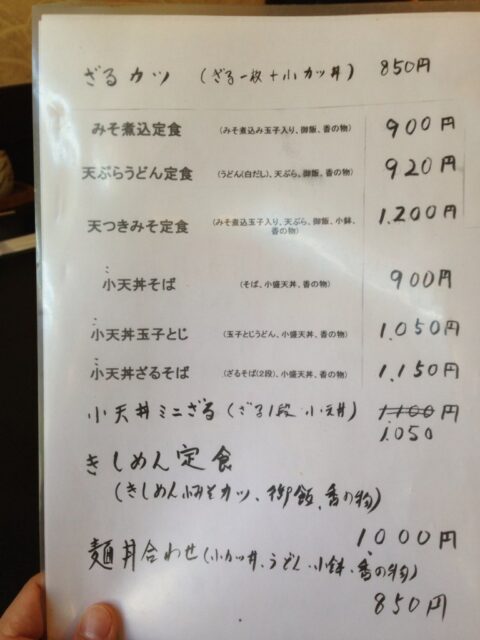 ざるカツ （ざる一枚＋小カツ丼） 850円
みそ煮込定食 （みそ煮込み玉子入り、御飯、香の物） 900円
天ぷらうどん定食 （うどん(白だし)、天ぷら、御飯、香の物） 920円
天つきみそ定食 （みそ煮込玉子入り、天ぷら、御飯、小鉢、 1.200円
香の物）
小天丼そば （そば、小盛天丼、香の物） 900円
小天丼玉子とじ （玉子とじうどん、小盛天丼、香の物） 1.050円
小天丼ざるそば （ざるそば(2段)、小盛天丼、香の物） 1.150円
小天丼ミニざる （ざる1段・小天丼） 1100円
1.050
きしめん定食
（きしめん、小みそカツ、御飯、香の物）
1.000円
麺丼合わせ（小カツ丼、うどん、小鉢、香の物）
850円